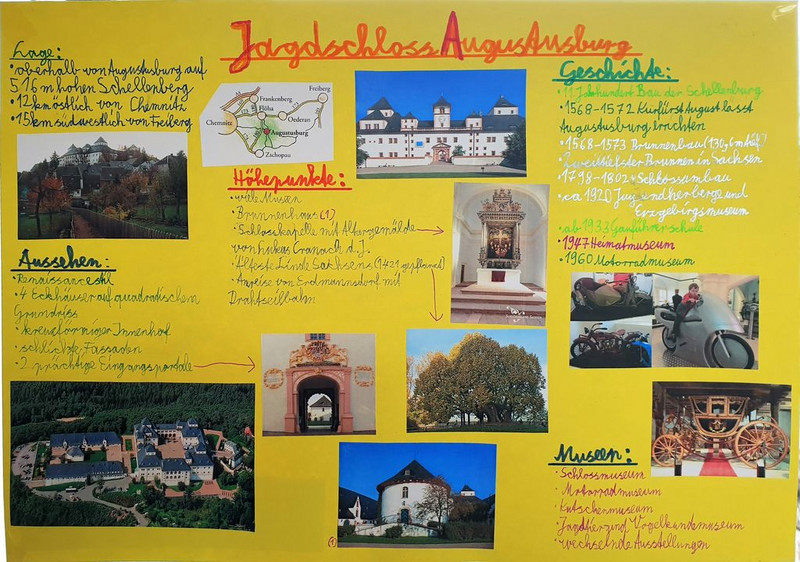 Jagdschloss Augustusburg
Lage:
• oberhalb von Augustusburg auf
516m hohen Schellenberg
• 12km östlich von Chemnitz
• 15km südwestlich von Freiberg
Aussehen:
• Renaissancestil
• 4 Eckhäuser auf quadratischen
Grundriss
• kreuzförmiger Innenhof
• schlichte Fassaden
• 2 prächtige Eingangsportale
Frankenberg
Freiberg
Flöha
Chemnitz
Oederan
Augustusburg
Zschopau
Höhepunkte:
• viele Museen
• Brunnenhaus (1)
• Schlosskapelle mit Altargemälde
von Lukas Cranach d. J.
• Älteste Linde Sachsens (1421 gepflanzt)
• Anreise von Erdmannsdorf mit
Drahtseilbahn
(1)
Geschichte:
• 11. Jahrhundert Bau der Schellenburg
• 1568-1572 Kurfürst August lässt
Augustusburg errichten
• 1568-1573 Brunnenbau (130,6m tief)
Zweittiefster Brunnen in Sachsen
• 1798-1802 Schlossumbau
• ca 1920 Jugendherberge und
Erzgebirgsmuseum
• ab 1933 Gauführerschule
• 1947 Heimatmuseum
• 1960 Motorradmuseum
Museen:
• Schlossmuseum
• Motorradmuseum
• Kutschenmuseum
• Jagdtier und Vogelkundemuseum
• wechselnde Ausstellungen